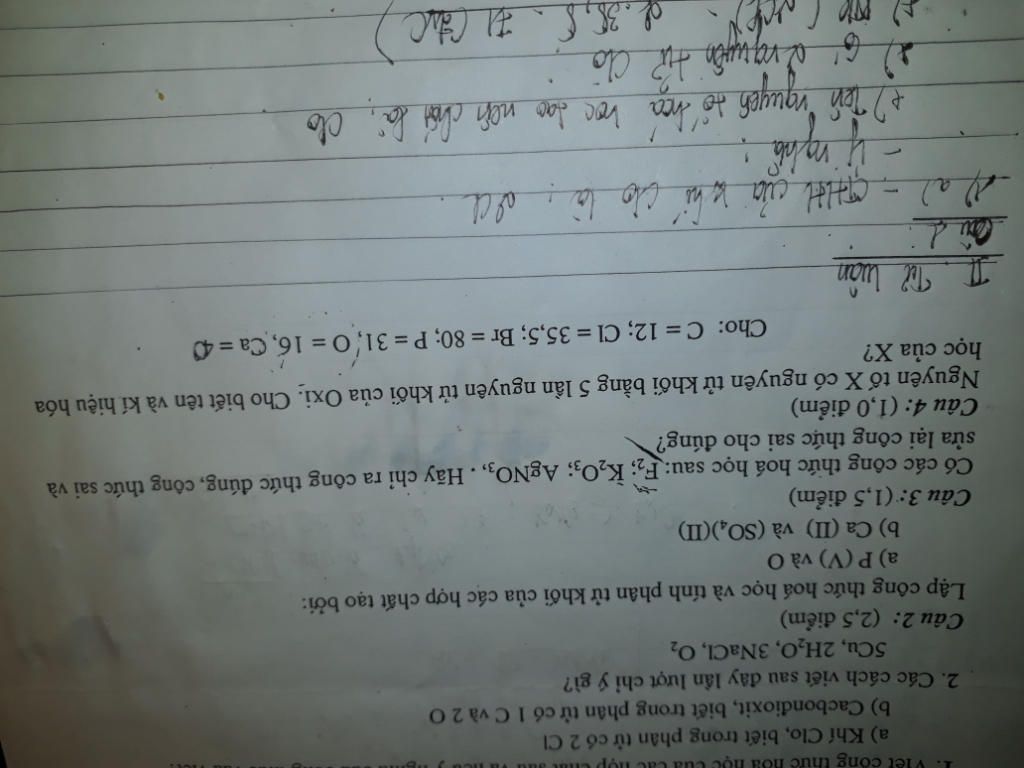 1. Viết công thức hoá học của các hợp chất sau và nêu ý nghĩa của công thức vừa viết:
a) Khí Clo, biết trong phân tử có 2 Cl
b) Cacbondioxit, biết trong phân tử có 1 C và 2 O
2. Các cách viết sau đây lần lượt chỉ ý gì?
5Cu, 2H₂O, 3NaCl, O₂
Câu 2: (2,5 điểm)
Lập công thức hoá học và tính phân tử khối của các hợp chất tạo bởi:
a) P (V) và O
b) Ca (II) và (SO₄)(II)
Câu 3: (1,5 điểm)
Có các công thức hoá học sau: F₂; K₂O₃; AgNO₃, . Hãy chỉ ra công thức đúng, công thức sai và
sửa lại công thức sai cho đúng?
Câu 4: (1,0 điểm)
Nguyên tố X có nguyên tử khối bằng 5 lần nguyên tử khối của Oxi. Cho biết tên và kí hiệu hóa
học của X?
Cho: C = 12; Cl = 35,5; Br = 80; P = 31; O = 16, Ca = 40
II Tự luận
Câu 1:
1) a) - CTHH của khí clo là: 2Cl
- Ý nghĩa:
+) Tên nguyên tố hóa học tạo nên chất là: Clo
+) Có 2 nguyên tử Clo
2.35,5 = 71 (đvC)